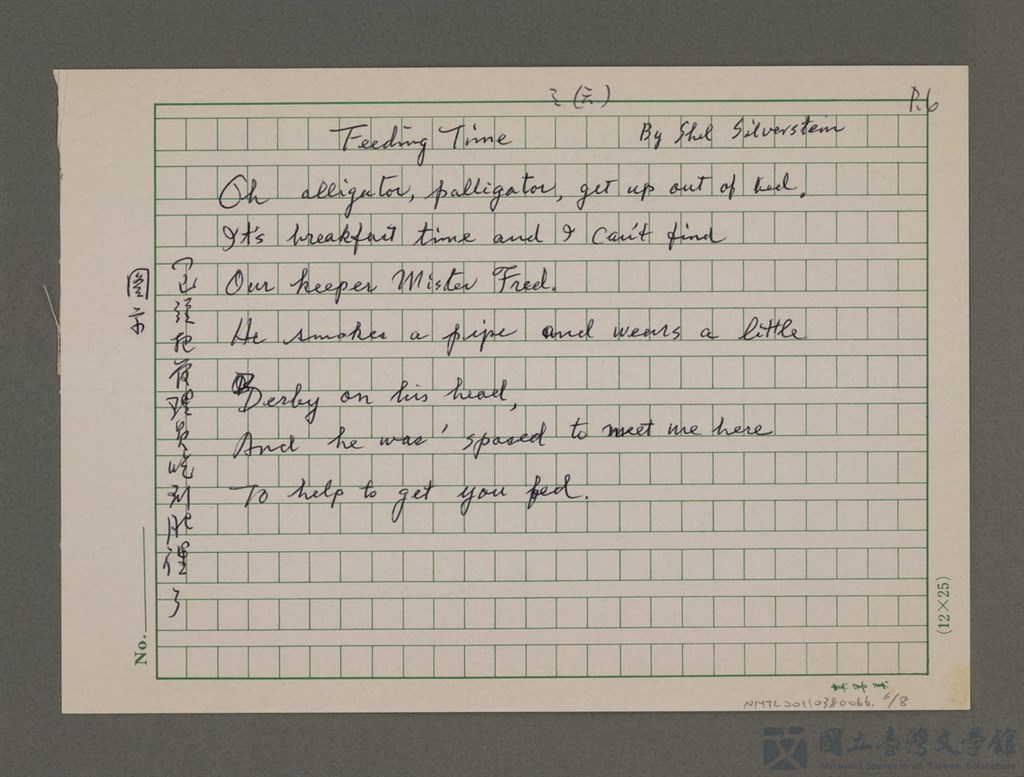 P.6
Feeding Time By Shel Silverstein
Oh alligator, palligator, get up out of bed,
It's breakfast time and I can't find
Our keeper Mister Fred.
He smokes a pipe and wears a little
Derby on his head,
And he was 'sposed to meet me here
To help to get you fed.
圖示
(已經把管理員吃到肚裡了
No.
(12×25)
NMTL20110380066, 6/8
國立臺灣文學館
National Museum of Taiwan Literature